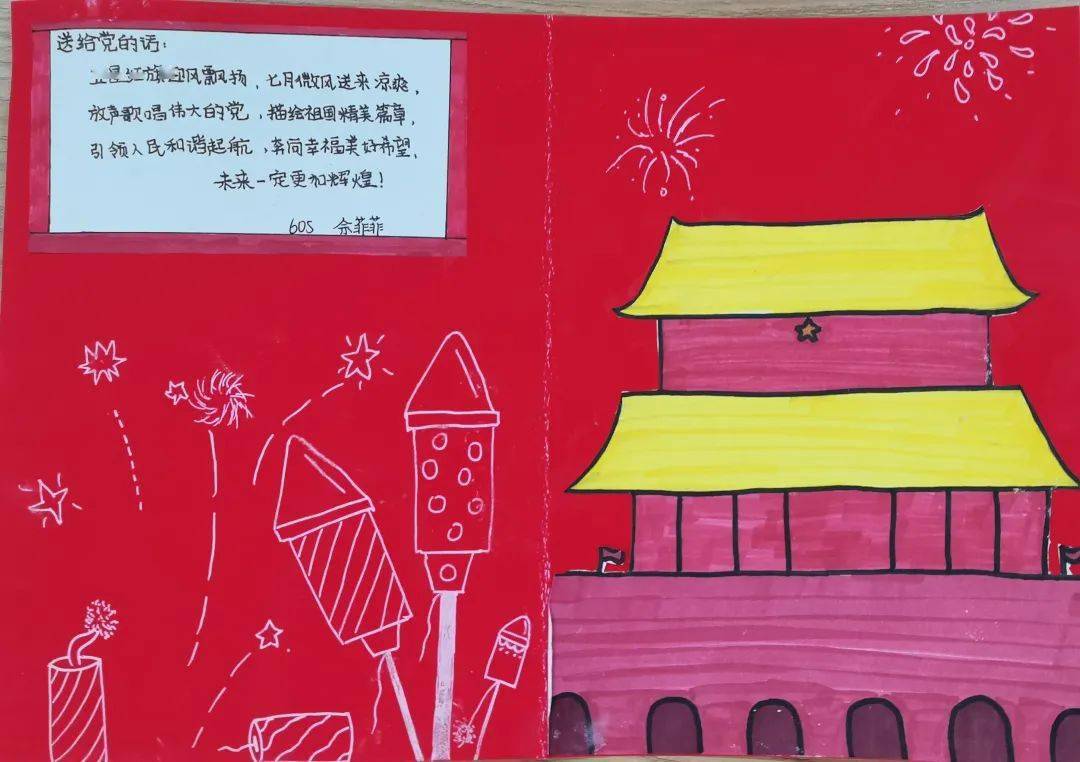 送给党的话：
五星红旗迎风飘扬，七月微风送来凉爽，
放声歌唱伟大的党，描绘祖国精美篇章，
引领人民和谐起航，奔向幸福美好希望，
未来一定更加辉煌！
605 佘菲菲